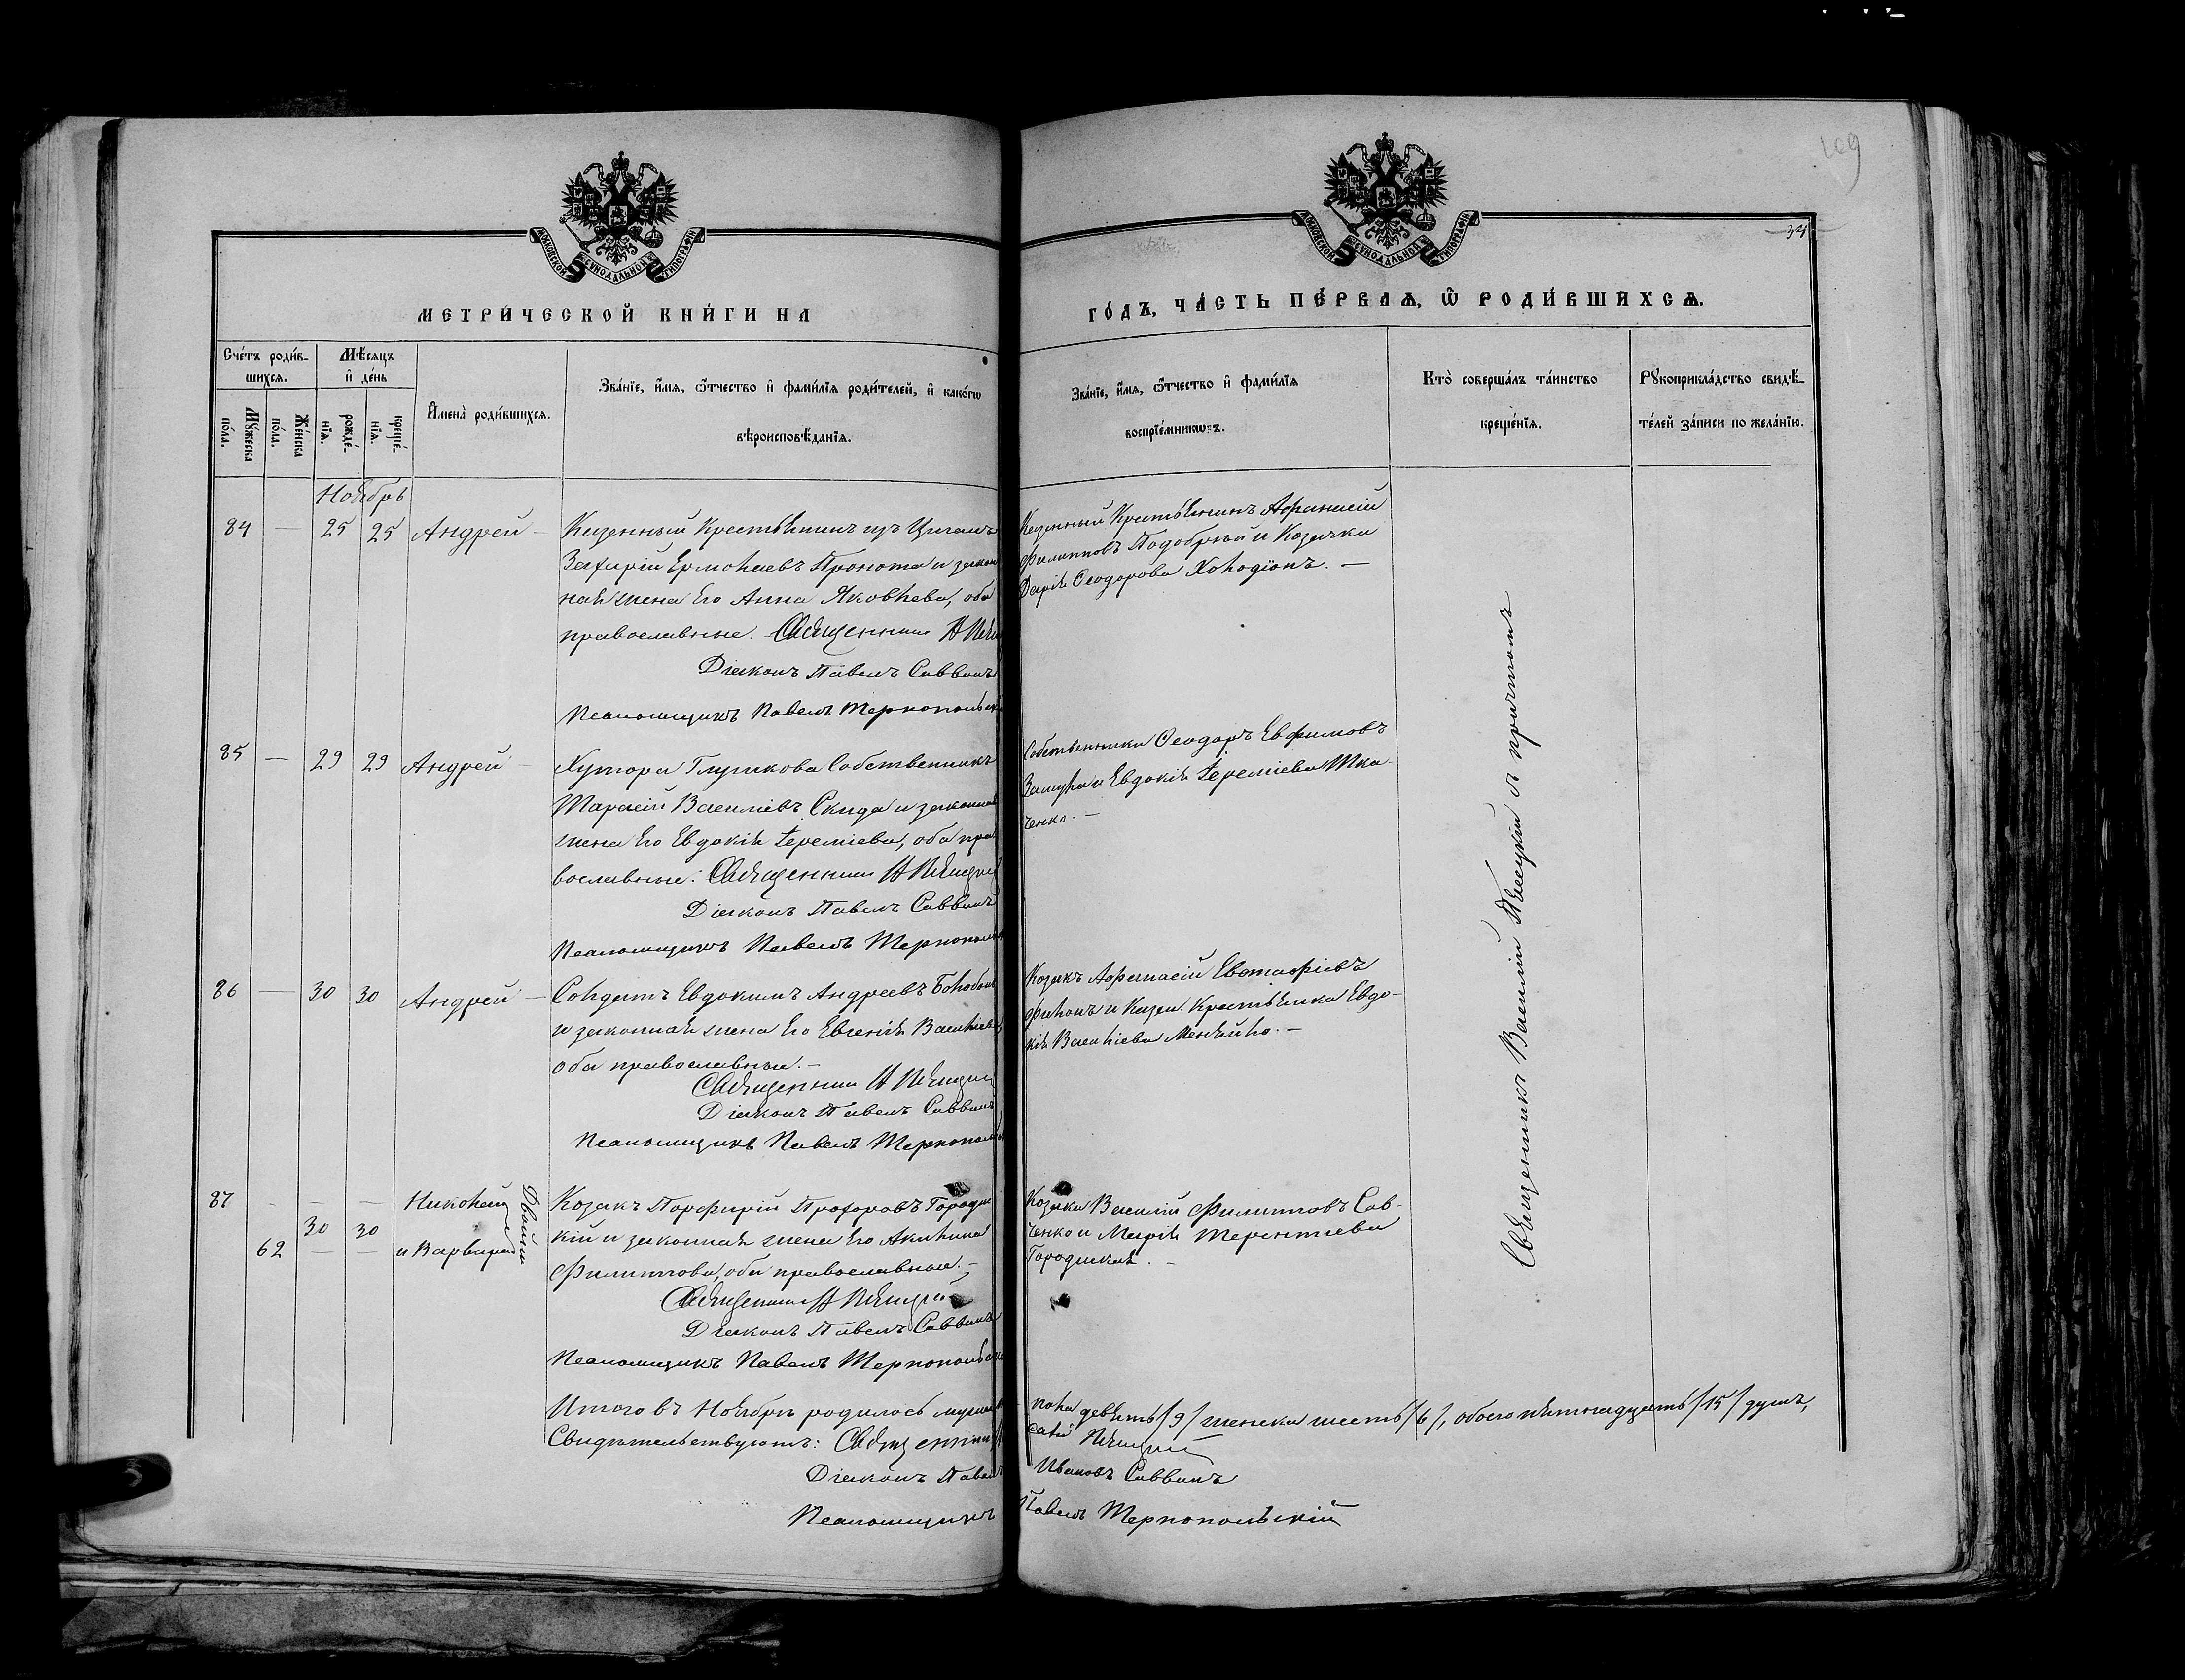 109
34
МОСКОВСКОЙ СѴНОДАЛЬНОЙ ТИПОГРАФІИ
МОСКОВСКОЙ СѴНОДАЛЬНОЙ ТИПОГРАФІИ
МЕТРИ́ЧЕСКОЙ КНИ́ГИ НА
ГО́ДЪ, ЧА́СТЬ ПЕ́РВАѦ, Ѡ҆ РОДИ́ВШИХСѦ.
Сче́тъ роди́в-
шихсѧ.
Мꙋ́жеска по́ла.
Же́нска по́ла.
Мѣ́сяцъ
и҆ де́нь
рожде́-нїѧ.
креще́-нїѧ.
И҆мена̀ роди́вшихсѧ.
Зва́нїе, и҆́мѧ, ѻ҆́тчество и҆ фами́лїѧ роди́телей, и҆ како́гѡ
вѣроисповѣ́данїѧ.
Зва́нїе, и҆́мѧ, ѻ҆́тчество и҆ фами́лїѧ
воспрїе́мникѡвъ.
Кто̀ соверша́лъ та́инство
креще́нїѧ.
Рꙋкоприкла́дство свидѣ́-
телей за́писи по жела́нїю.
Ноябрь
84 — 25 25 Андрей —
Казенный Крестьянинъ изъ Циганъ
Захарій Ермолаевъ Пронота и закон
ная жена Его Анна Яковлева, оба
православные. Священникъ
Діаконъ Павелъ Саввинъ
Псаломщикъ Павелъ Тернопольскі
Казенный Крестьянинъ Афанасій
Филипповъ Подобрный и Козачка
Дарія Ѳеодорова Холодіонъ. —
85 — 29 29 Андрей —
Хутора Глушкова Собственникъ
Тарасій Василіевъ Скида и законная
жена Его Евдокія Іереміева, оба пра
вославные. Священникъ
Діаконъ Павелъ Саввинъ
Псаломщикъ Павелъ Тернополь
Собственники Ѳеодоръ Евфимовъ
и Евдокія Іереміева Тка-
ченко. —
86 — 30 30 Андрей —
Солдатъ Евдокимъ Андреевъ
и законная жена Его Евгенія Василіева
оба православные. —
Священникъ
Діаконъ Павелъ Саввинъ
Псаломщикъ Павелъ Тернополь
Козакъ Афанасій Евстафіевъ
Филонъ и Казен. Крестьянка Евдо-
кія Василіева Меняйло. —
87 — —
Николай
62 30 30
и Варвара
Двойни
Козакъ Порфирій Прохоровъ Городис
кій и законная жена Его Акилина
Филиппова, оба православные. —
Священникъ
Діаконъ Павелъ Саввинъ
Псаломщикъ Павелъ Тернопольскі
Козаки Василій Филипповъ Сав-
ченко и Марія Терентіева
Городиская. —
Священникъ Василій Пѣшцкій съ причтомъ
Итого въ Ноябрѣ родилось мужеска пола девять /9/ женска шесть /6/, обоего пятнадцать /15/ душъ,
Свидѣтельствуютъ: Священникъ
Діаконъ Павелъ Ивановъ Саввинъ
Псаломщикъ Павелъ Тернопольскій